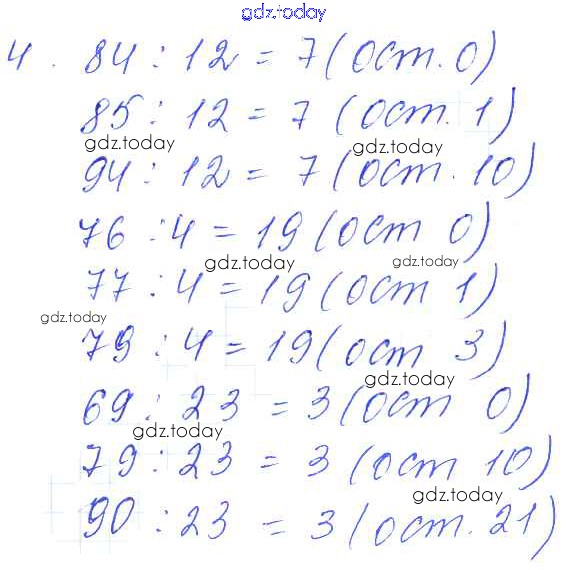 gdz.today
4. 84 : 12 = 7 (ост. 0)
85 : 12 = 7 (ост. 1)
gdz.today gdz.today
94 : 12 = 7 (ост. 10)
76 : 4 = 19 (ост 0)
gdz.today gdz.today
77 : 4 = 19 (ост 1)
gdz.today
79 : 4 = 19 (ост 3)
gdz.today
69 : 23 = 3 (ост 0)
gdz.today
79 : 23 = 3 (ост 10)
gdz.today
90 : 23 = 3 (ост. 21)